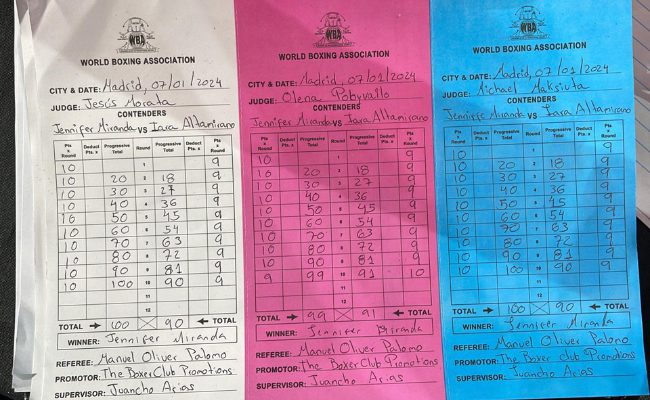 WBA
WORLD BOXING ASSOCIATION
CITY & DATE: Madrid, 07/01/2024
JUDGE: Jesús Morata
CONTENDERS
Jennifer Miranda VS Iara Altamirano
Pts x Round Deduct Pts. x Progressive Total Round Progressive Total Deduct Pts. x Pts x Round
10 1 9
10 20 2 18 9
10 30 3 27 9
10 40 4 36 9
10 50 5 45 9
10 60 6 54 9
10 70 7 63 9
10 80 8 72 9
10 90 9 81 9
10 100 10 90 9
11
12
TOTAL 100 90 TOTAL
WINNER: Jennifer Miranda
REFEREE: Manuel Oliver Palomo
PROMOTOR: The Boxer Club Promotions
SUPERVISOR: Juancho Arias
WBA
WORLD BOXING ASSOCIATION
CITY & DATE: Madrid, 07/01/2024
JUDGE: Olena Pobyvailo
CONTENDERS
Jennifer Miranda VS Iara Altamirano
Pts x Round Deduct Pts. x Progressive Total Round Progressive Total Deduct Pts. x Pts x Round
10 1 9
10 20 2 18 9
10 30 3 27 9
10 40 4 36 9
10 50 5 45 9
10 60 6 54 9
10 70 7 63 9
10 80 8 72 9
10 90 9 81 9
9 99 10 91 10
11
12
TOTAL 99 91 TOTAL
WINNER: Jennifer Miranda
REFEREE: Manuel Oliver Palomo
PROMOTOR: The Boxer Club Promotions
SUPERVISOR: Juancho Arias
WBA
WORLD BOXING ASSOCIATION
CITY & DATE: Madrid, 07/01/2024
JUDGE: Michael Maksiuta
CONTENDERS
Jennifer Miranda VS Iara Altamirano
Pts x Round Deduct Pts. x Progressive Total Round Progressive Total Deduct Pts. x Pts x Round
10 1 9
10 20 2 18 9
10 30 3 27 9
10 40 4 36 9
10 50 5 45 9
10 60 6 54 9
10 70 7 63 9
10 80 8 72 9
10 90 9 81 9
10 100 10 90 9
11
12
TOTAL 100 90 TOTAL
WINNER: Jennifer Miranda
REFEREE: Manuel Oliver Palomo
PROMOTOR: The Boxer Club Promotions
SUPERVISOR: Juancho Arias